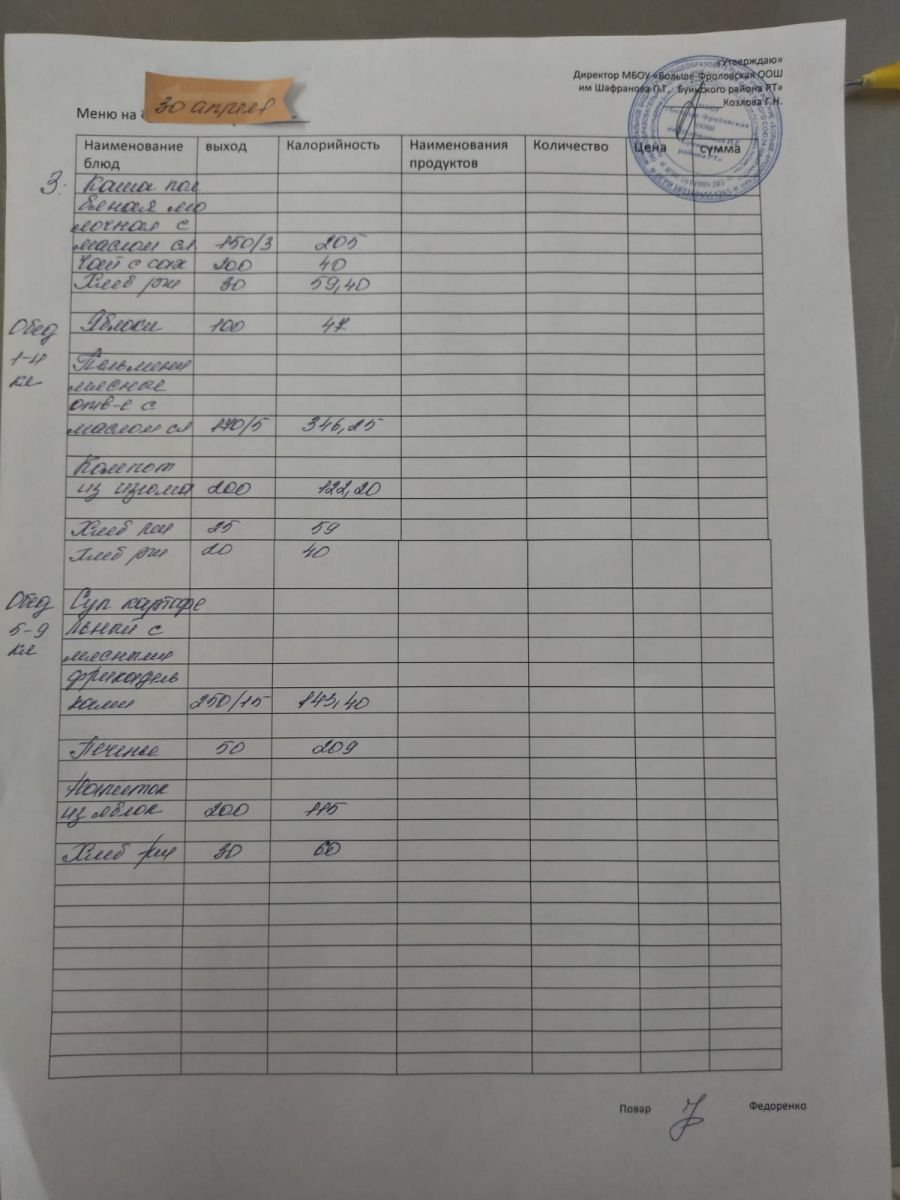 «Утверждаю»
Директор МБОУ «Больше-Фроловская ООШ
им Шафранова П.Г. Буинского района РТ»
Козлова Г.Н.
Меню на 30 апреля
Наименование блюд выход Калорийность Наименования продуктов Количество Цена сумма
З. Каша пол
бяная мо
лочная с
маслом сл 150/3 205
Чай с сах 200 40
Хлеб рж 30 59,40
Обед Яблоки 100 47
1-4
кл
Пельмени
мясные
отв-е с
маслом сл 170/5 346,25
Компот
из изюма 200 122,20
Хлеб пш 25 59
Хлеб рж 20 40
Обед Суп картофе
5-9 льный с
кл мясными
фрикадель
ками 250/15 143,40
Печенье 50 209
Напиток
из яблок 200 115
Хлеб рж 30 60
Повар Федоренко